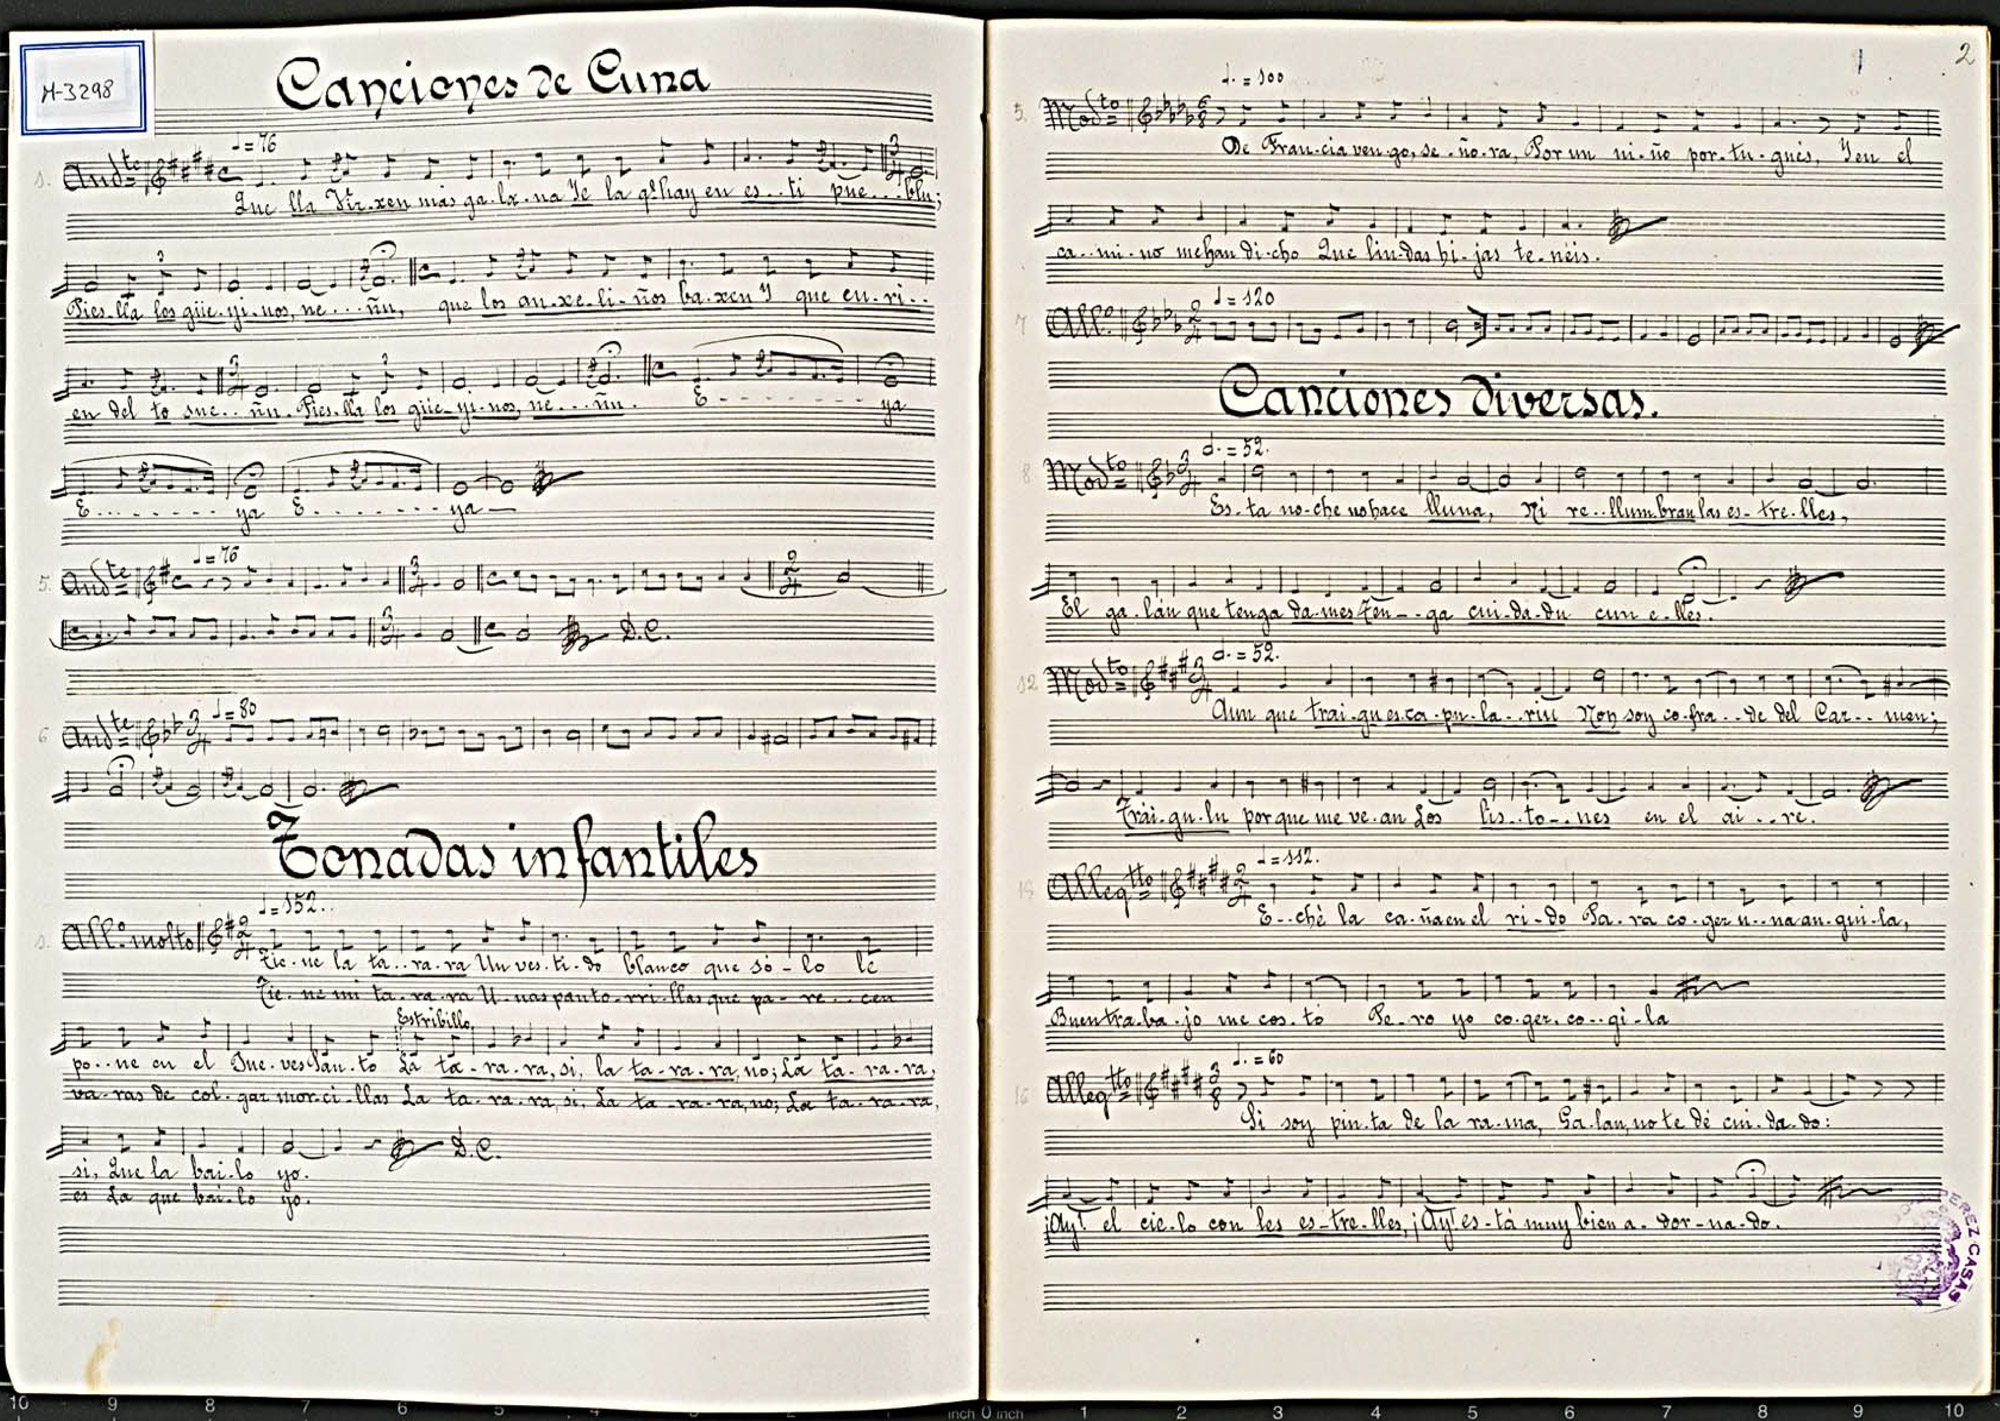 M-3298
Canciones de Cuna
♩=76
1. Andte
Que lla Vir-xen más ga-la-na Ye la q.e hay en es..ti pue...blu;
Pies-lla los güe-yi-nos, ne...ñu, que los an-xe-li-ños ba-xen Y que en-ri..
en del to sue..ñu. Pies-lla los güe-yi-nos, ne...ñu. E - - - - - - ya
E......... ya E........ ya—
♩=76
5. Andte
D.C.
♩=80
6 Andte
Tonadas infantiles
♩=152..
All.o molto
Tie-ne la ta..ra-ra Un ves-ti-do blanco que só-lo le
Tie-ne mi ta-ra-ra U-nas panto-rri-llas que pa-re..cen
Estribillo
po..ne en el Jue-ves San-to La ta-ra-ra, sí, la ta-ra-ra, no; La ta-ra-ra,
va-ras de col-gar mor-ci-llas La ta-ra-ra, sí, La ta-ra-ra, no; La ta-ra-ra,
sí, Que la bai-lo yo. D.C.
es La que bai-lo yo.
1 2
♩.=100
5. Modto
De Fran-cia ven-go, se-ño-ra, Por un ni-ño por-tu-gués, Y en el
ca..mi-no me han di-cho Que lin-das hi-jas te-néis.
♩=120
7 All.o
Canciones diversas.
♩.=52.
8 Modto
Es-ta no-che no hace lluna, Ni re..llum-bran las es-tre-lles,
El ga-lán que tenga da-mes Ten--ga cui-da-du cun e-lles.
♩.=52.
12 Modto
Aun que trai-gu es-ca-pu-la-riu Non soy co-fra..de del Car..men;
Trái-gu-lu por que me ve-an Los lis-to--nes en el ai...re.
♩=112.
Allegtto
E..ché la ca-ña en el rí-do Pa-ra co-ger u-na an-gui-la,
Buen tra-ba-jo me cos-tó Pe-ro yo co-ger, co--gí-la
♩.=60
16 Allegtto
Si soy pin-ta de la ra-ma, Ga-lan, no te dé cui-da-do:
¡Ay! el cie-lo con les es-tre-lles, ¡Ay! es-tá muy bien a-dor-na-do.
PEREZ CASAS
10 9 8 7 6 5 4 3 2 1 inch 0 inch 1 2 3 4 5 6 7 8 9 10